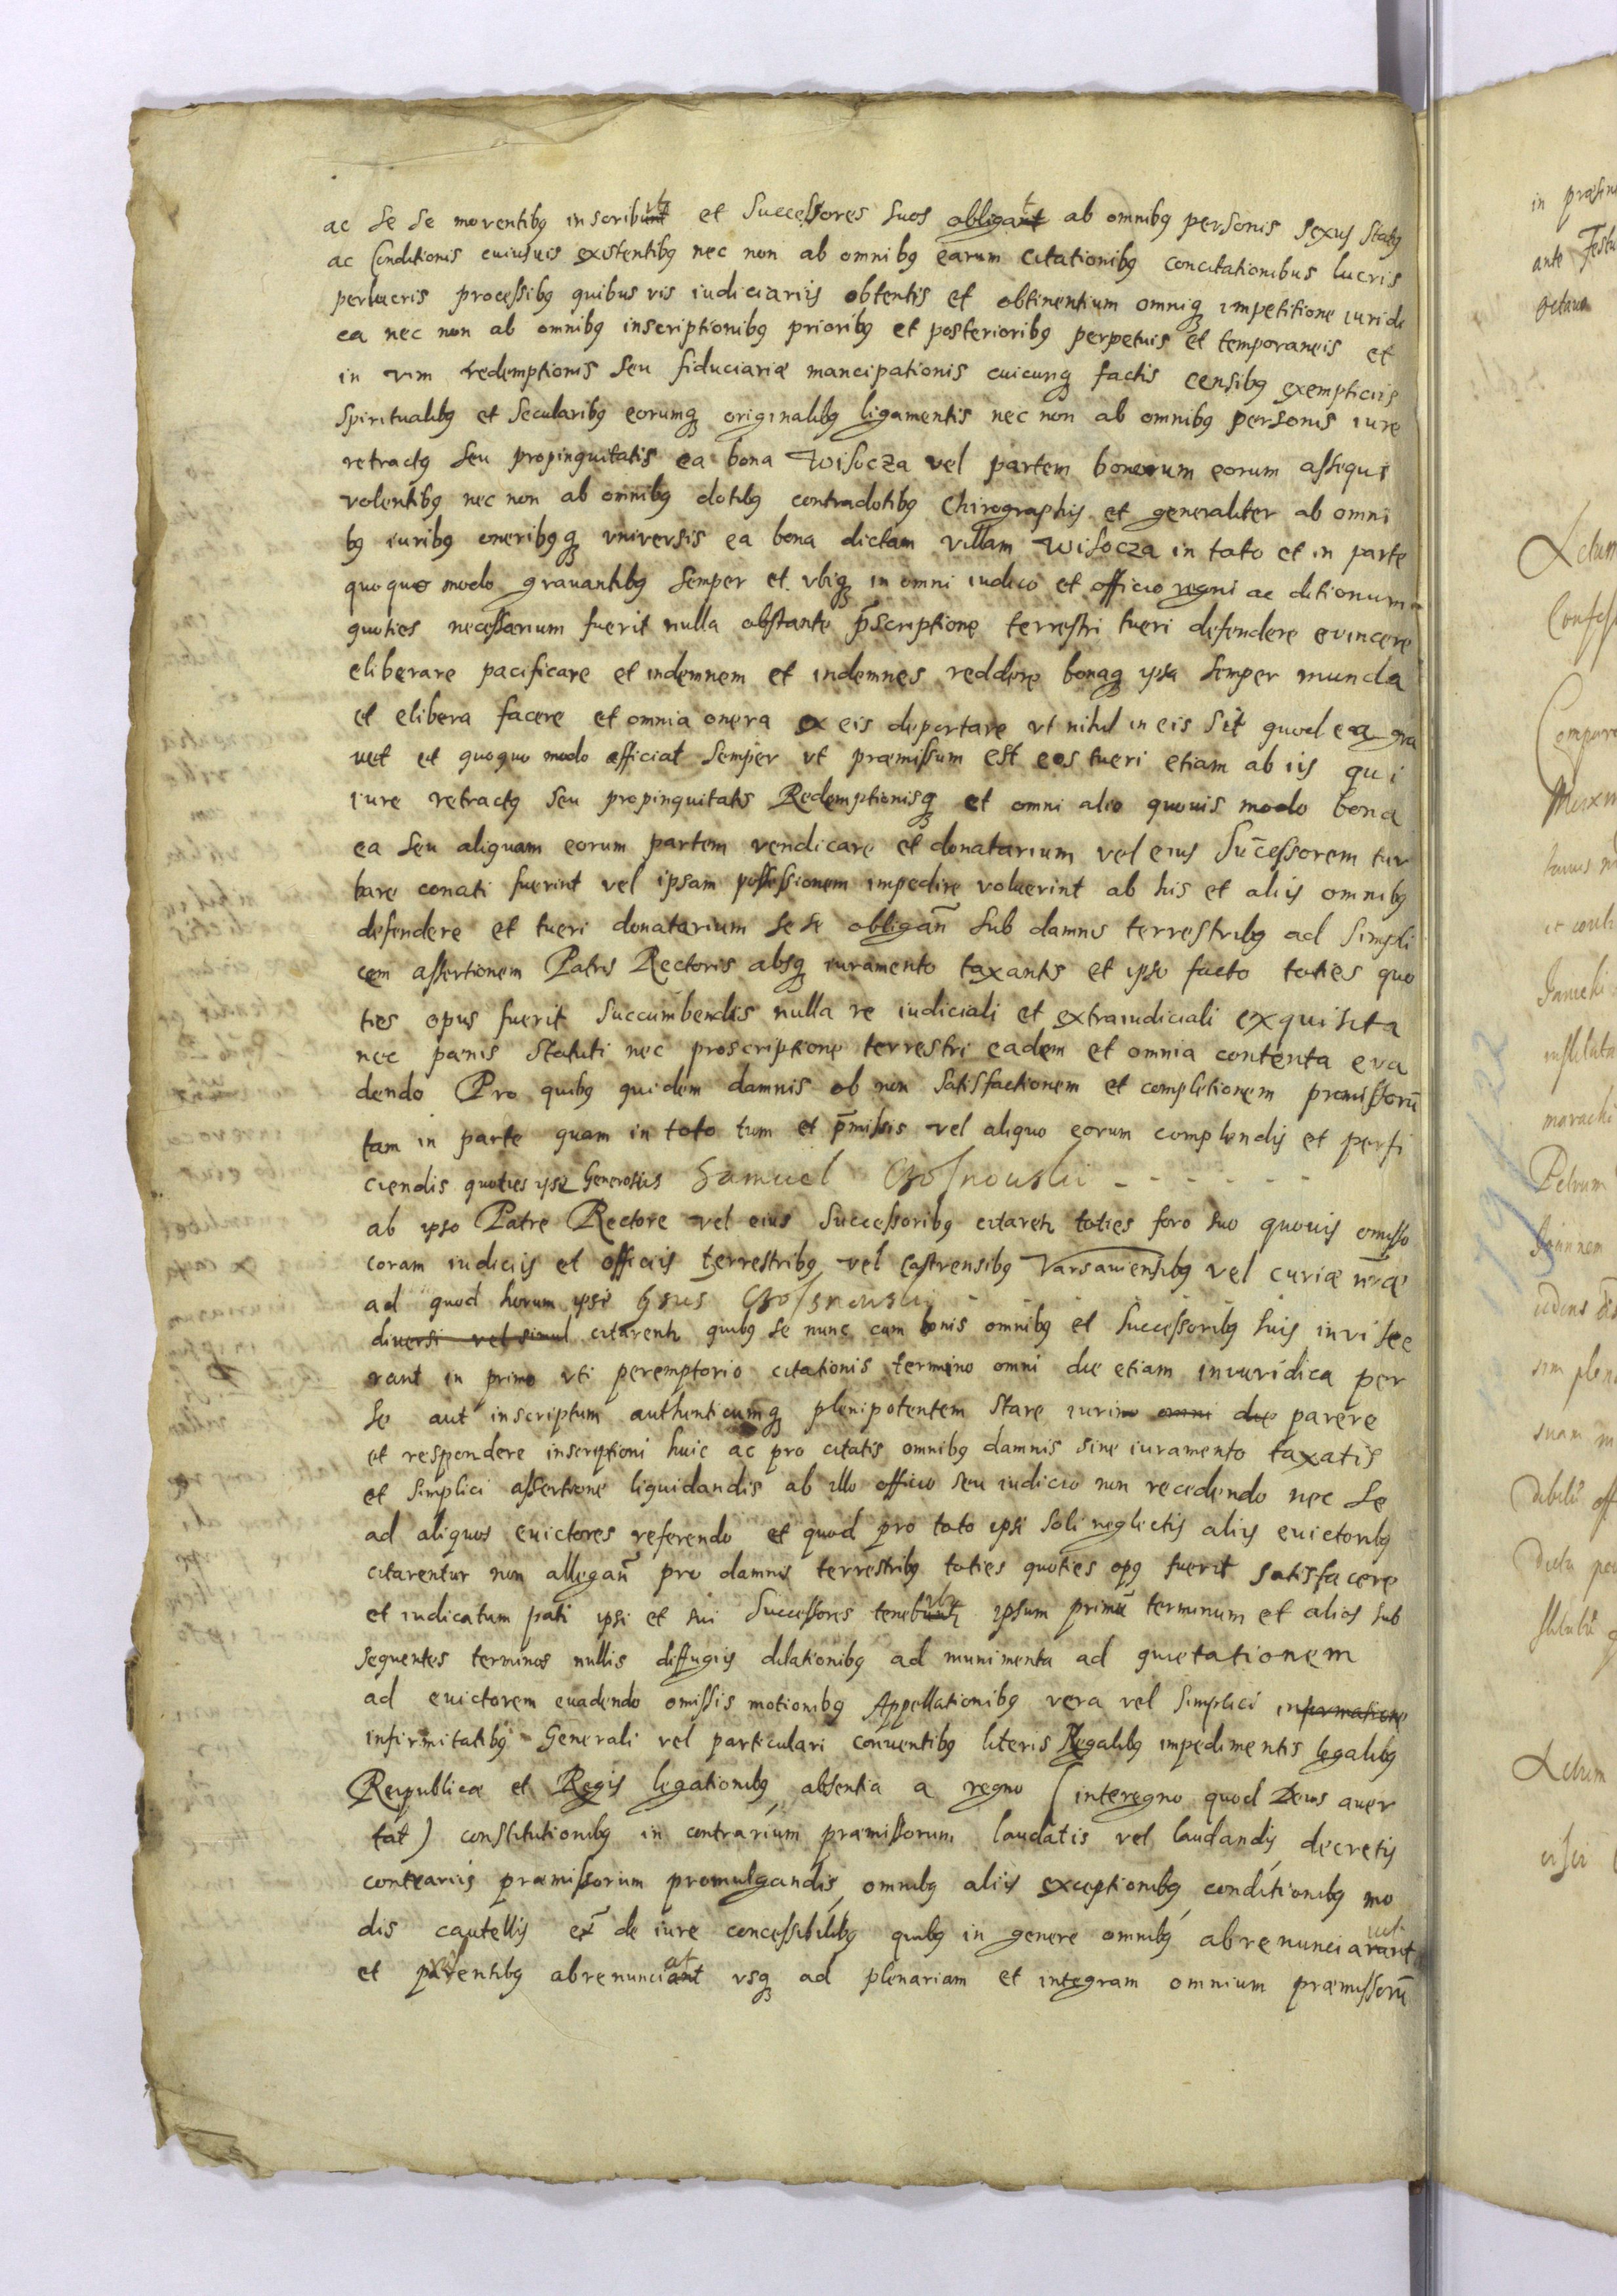 ac se se moventibꝫ inscribunt et Successores suos obligant ab omnibꝫ personis sexus statꝫ
ac Conditionis cuiusvis existentibꝫ nec non ab omnibꝫ earum citationibꝫ concitationibus lucris
perlucris processibꝫ quibus vis iudiciariis obtentis et obtinentium omniqꝫ impetitione iuridi
ca nec non ab omnibꝫ inscriptionibꝫ prioribꝫ et posterioribꝫ perpetuis et temporaneis et
in vim redemptionis seu fiduciariæ mancipationis cuicunqꝫ factis censibꝫ exempticiis
spiritualibꝫ et secularibꝫ eorumqꝫ originalibꝫ ligamentis nec non ab omnibꝫ personis iure
retractꝫ seu propinquitatis ea bona Wisocza vel partem bonorum eorum assequi
volentibꝫ nec non ab omnibꝫ dotibꝫ contradotibꝫ Chirographis et generaliter ab omni
bꝫ iuribꝫ oneribꝫqꝫ vniversis ea bona dictam villam Wisocza in toto et in parte
quoquo modo gravantibꝫ semper et vbiqꝫ in omni iudicio et officio regni ac ditionum
quoties necessarium fuerit nulla obstante p̄scriptione terrestri tueri defendere evincere
eliberare pacificare et indemnem et indemnes reddere bonaqꝫ ipsa semper munda
et elibera facere et omnia onera ex eis deportare vt nihil in eis sit quod ea gra
vet et quoquo modo afficiat semper vt præmissum est eos tueri etiam ab iis qui
iure retractꝫ seu propinquitatis Redemptionisqꝫ et omni alio quovis modo bona
ea seu aliquam eorum partem vendicare et donatarium vel eius Sucessorem tur
bare conati fuerint vel ipsam possessionem impedire voluerint ab his et aliis omnibꝫ
defendere et tueri donatarium se se obligan̄ sub damnis terrestribꝫ ad simpli
cem assertionem Patris Rectoris absqꝫ iuramento taxantis et ipso facto toties quo
ties opus fuerit succumbendis nulla re iudiciali et extraiudiciali exquisita
nec pænis statuti nec proscriptione terrestri eadem et omnia contenta eva
dendo Pro quibꝫ quidem damnis ob non satisfactionem et completionem præmissorū
tam in parte quam in toto tum et p̄missis vel aliquo eorum complendis et perfi
ciendis quoties ipse Generosus Samuel Chosnouski - - - - - -
ab ipso Patre Rectore vel eius Successoribꝫ citaretr toties foro suo quovis omisso
coram iudiciis et officiis terrestribꝫ vel castrensibꝫ Varsaviensibꝫ vel curiæ n̄ræ
ad quod horum ipse Gsus Chosnouski - - - -
diversi vel simul citarentr quibꝫ se nunc cum bonis omnibꝫ et successoribꝫ suis invisce
rant in primo vti peremptorio citationis termino omni die etiam inuridica per
se aut inscriptum authenticumqꝫ plenipotentem stare iurino omni die parere
et respondere inscriptioni huic ac pro citatis omnibꝫ damnis sine iuramento taxatis
et simplici assertione liquidandis ab illo officio seu iudicio non recedendo nec se
ad aliquos evictores referendo et quod pro toto ipsi soli neglectis aliis evictoribꝫ
citarentur non allegan̄ pro damnis terrestribꝫ toties quoties opꝫ fuerit satisfacere
et iudicatum pati ipsi et sui Successores tenebuntr ipsum primū terminum et alios sub
sequentes terminos nullis diffugiis dilationibꝫ ad munimenta ad quietationem
ad evictorem evadendo omissis motionibꝫ Appellationibꝫ vera vel simplici informatione
infirmitatibꝫ Generali vel particulari conventibꝫ literis Regalibꝫ impedimentis legalibꝫ
Reipublicæ et Regis legationibꝫ absentia a regno (interegno quod Deus aver
tat) constitutionibꝫ in contrarium præmissorum laudatis vel laudandis decretis
contrariis præmissorum promulgandis omnibꝫ aliis exceptionibꝫ conditionibꝫ mo
dis cautellis et̄ de iure concessibilibꝫ quibꝫ in genere omnibꝫ abrenunciarant
et parentibꝫ abrenunciant vsqꝫ ad plenariam et integram omnium præmissorū